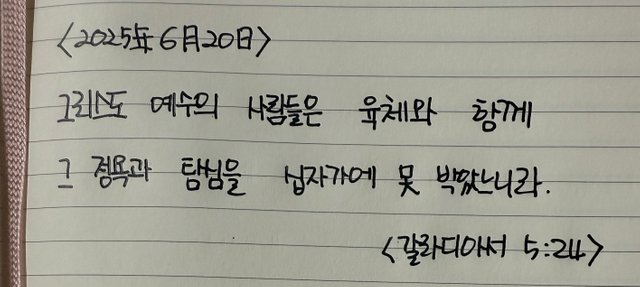 <2025年 6月 20日>
그리스도 예수의 사람들은 육체와 함께
그 정욕과 탐심을 십자가에 못 박았느니라.
<갈라디아서 5:24>